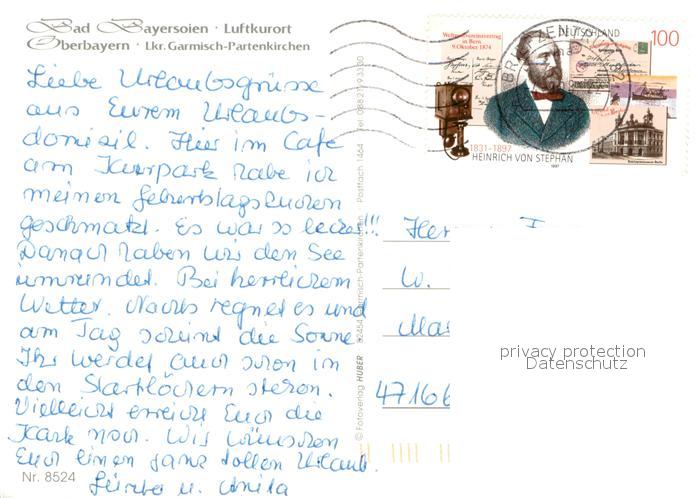 Bad Bayersoien · Luftkurort
Oberbayern · Lkr. Garmisch-Partenkirchen
Liebe Urlaubsgrüsse
aus Eurem Urlaubs-
domizil. Hier im Cafe
am Kurpark habe ich
meinen Geburtstagskuchen
geschmatzt. Es war so lecker!!!
Danach haben wir den See
umrundet. Bei herrlichem
Wetter. Nachts regnet es und
am Tag scheint die Sonne
Ihr werdet auch schon in
den Startlöchern stehen.
Vielleicht erreicht Euch die
Karte noch. Wir wünschen
Euch einen ganz tollen Urlaub.
u. Anita
Nr. 8524
© Fotoverlag HUBER · 82454 Garmisch-Partenkirchen · Postfach 1464
Weltpostvereinsvertrag
in Bern
9. Oktober 1874
DEUTSCHLAND
100
1831-1897
HEINRICH VON STEPHAN
1997
BRIEFZENTRUM
W.
47166
privacy protection
Datenschutz